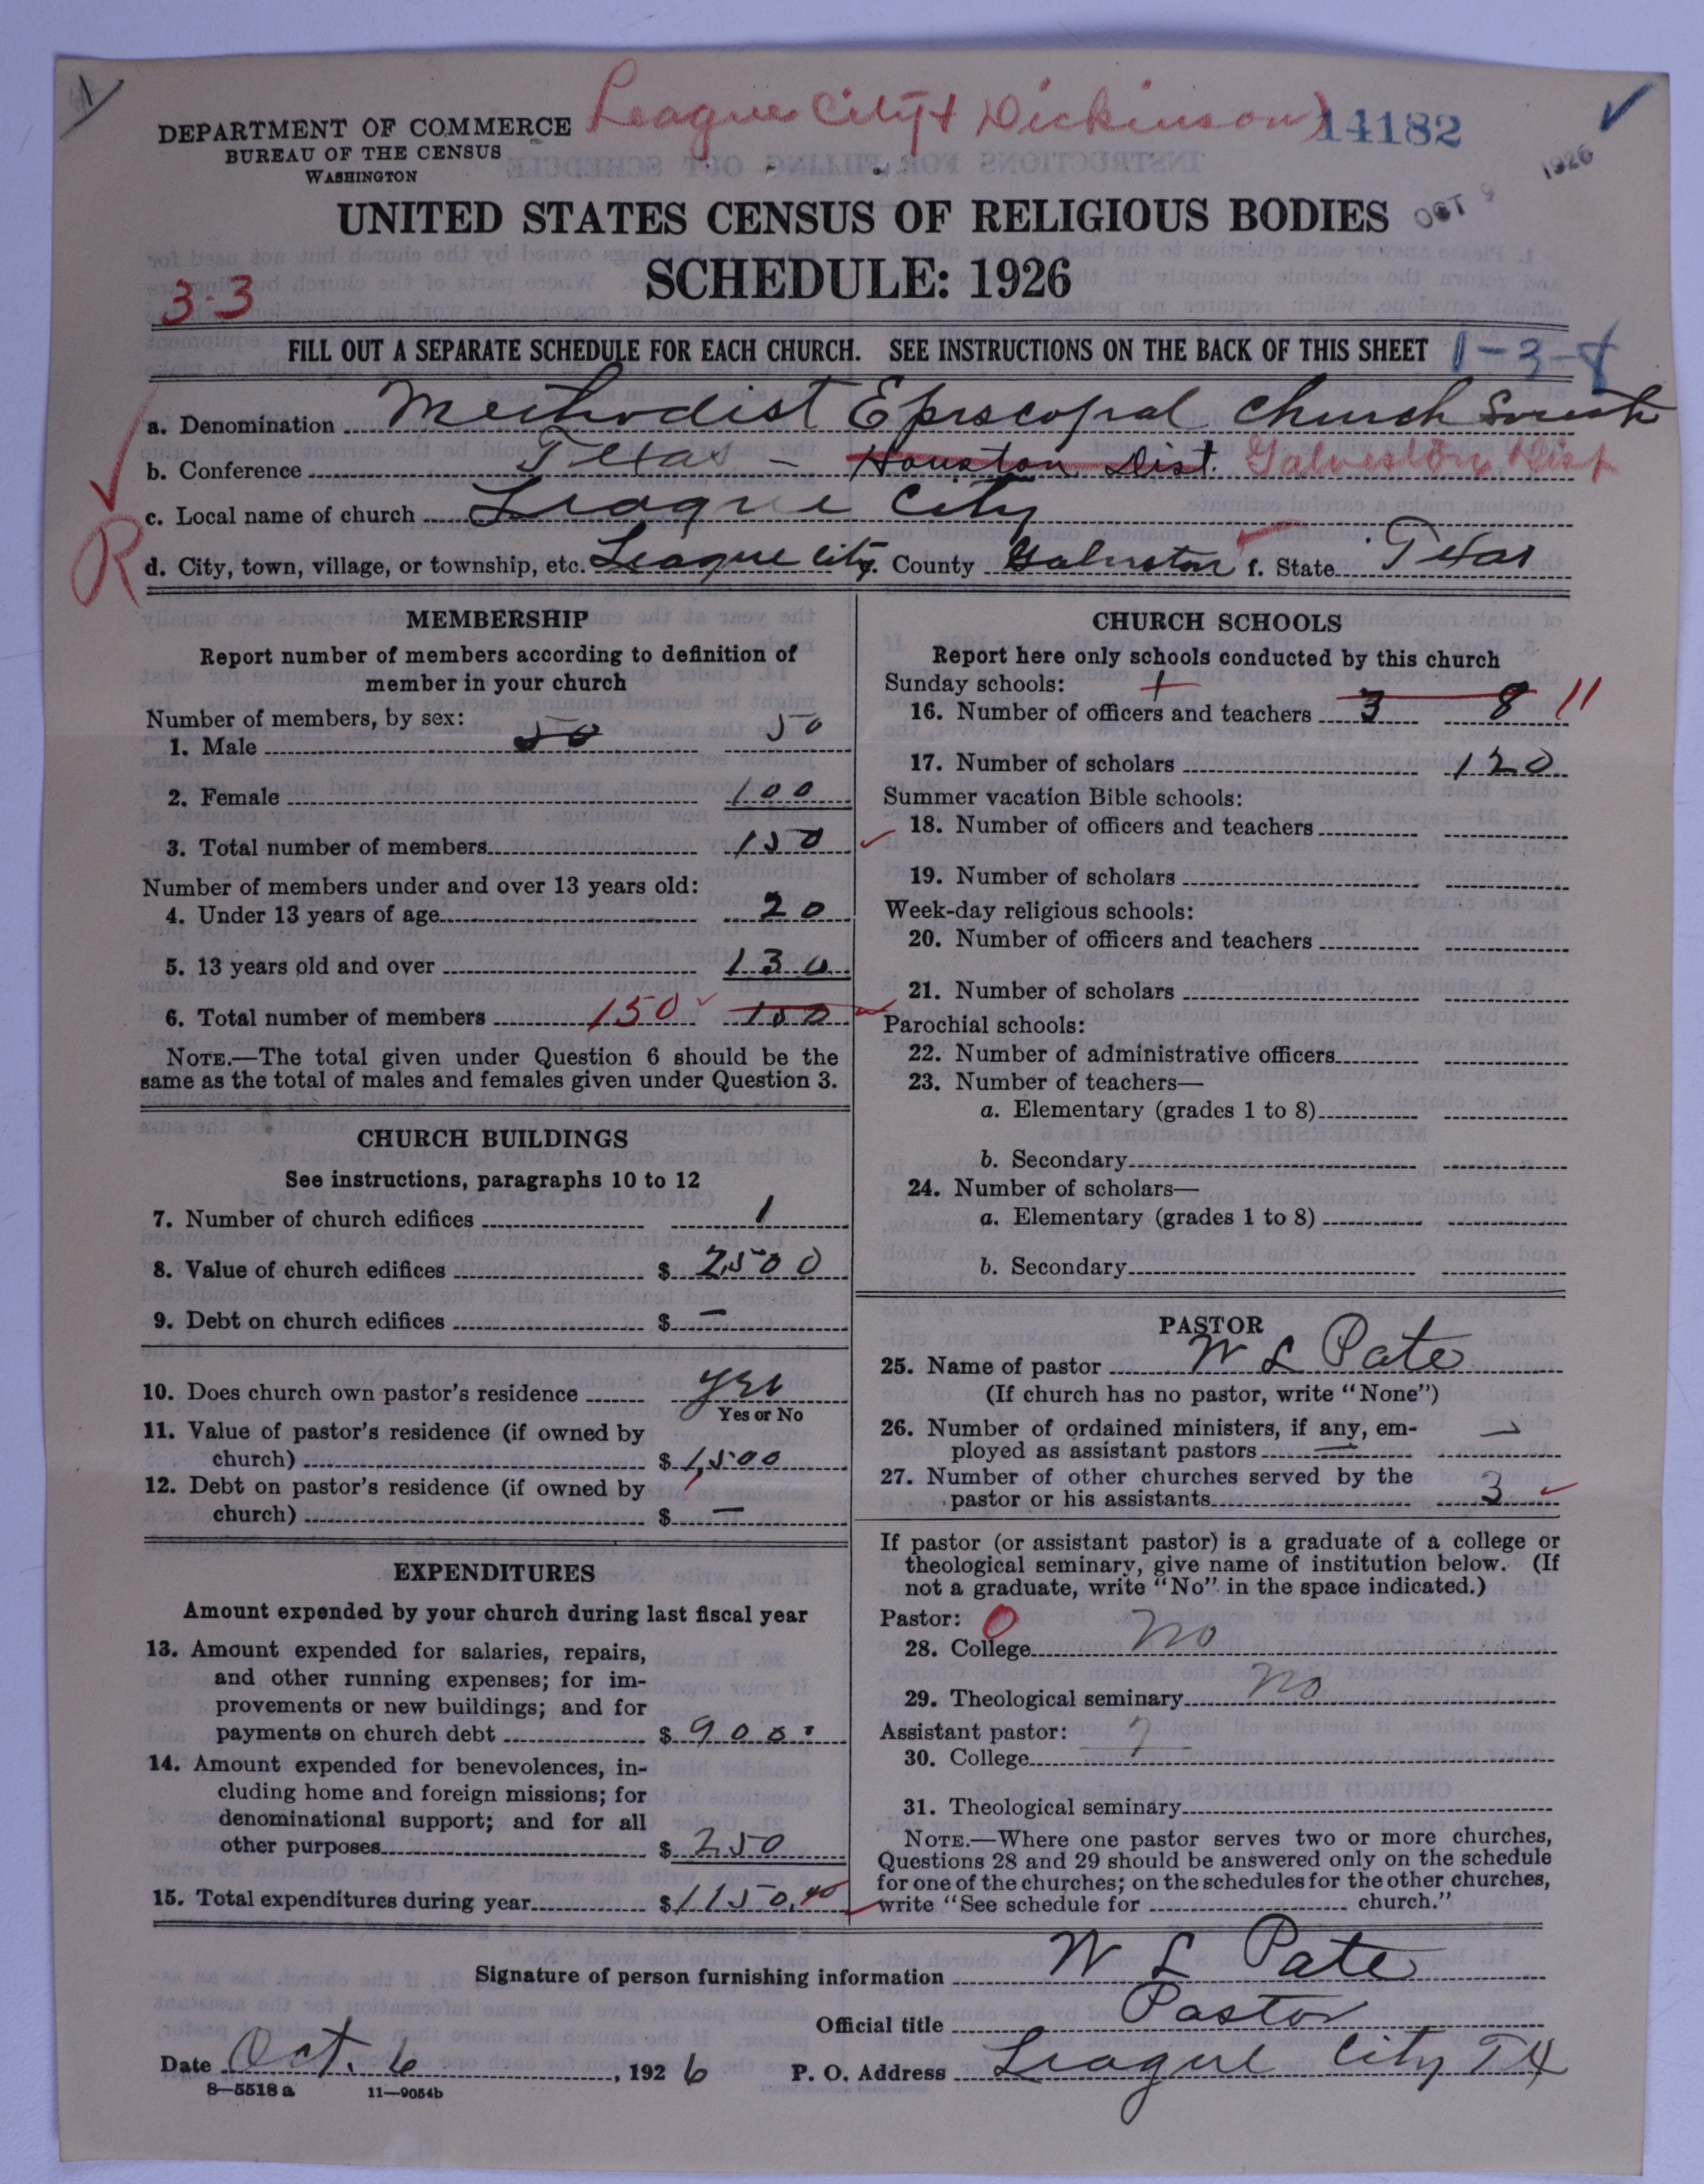 League City & Dickinson)
14182
DEPARTMENT OF COMMERCE
BUREAU OF THE CENSUS
WASHINGTON
OCT 9 1926
UNITED STATES CENSUS OF RELIGIOUS BODIES
SCHEDULE: 1926
3-3
FILL OUT A SEPARATE SCHEDULE FOR EACH CHURCH. SEE INSTRUCTIONS ON THE BACK OF THIS SHEET 1-3-8
a. Denomination Methodist Episcopal Church South
b. Conference Texas - Houston Dist. Galveston Dist
c. Local name of church League City
R
d. City, town, village, or township, etc. League City. County Galveston f. State Texas
MEMBERSHIP
Report number of members according to definition of
member in your church
Number of members, by sex:
1. Male 50 50
2. Female 100
3. Total number of members 150
Number of members under and over 13 years old:
4. Under 13 years of age 20
5. 13 years old and over 130
6. Total number of members 150 100
NOTE.—The total given under Question 6 should be the
same as the total of males and females given under Question 3.
CHURCH BUILDINGS
See instructions, paragraphs 10 to 12
7. Number of church edifices 1
8. Value of church edifices $ 2,500
9. Debt on church edifices $ —
10. Does church own pastor's residence yes
Yes or No
11. Value of pastor's residence (if owned by
church) $ 1,500
12. Debt on pastor's residence (if owned by
church) $ —
EXPENDITURES
Amount expended by your church during last fiscal year
13. Amount expended for salaries, repairs,
and other running expenses; for im-
provements or new buildings; and for
payments on church debt $ 900.
14. Amount expended for benevolences, in-
cluding home and foreign missions; for
denominational support; and for all
other purposes $ 250
15. Total expenditures during year $ 1150.
CHURCH SCHOOLS
Report here only schools conducted by this church
Sunday schools: +
16. Number of officers and teachers 3 8 11
17. Number of scholars 120
Summer vacation Bible schools:
18. Number of officers and teachers
19. Number of scholars
Week-day religious schools:
20. Number of officers and teachers
21. Number of scholars
Parochial schools:
22. Number of administrative officers
23. Number of teachers—
a. Elementary (grades 1 to 8)
b. Secondary
24. Number of scholars—
a. Elementary (grades 1 to 8)
b. Secondary
PASTOR
25. Name of pastor W L Pate
(If church has no pastor, write "None")
26. Number of ordained ministers, if any, em-
ployed as assistant pastors —
27. Number of other churches served by the
pastor or his assistants 3
If pastor (or assistant pastor) is a graduate of a college or
theological seminary, give name of institution below. (If
not a graduate, write "No" in the space indicated.)
Pastor: 0
28. College No
29. Theological seminary No
Assistant pastor: ?
30. College
31. Theological seminary
NOTE.—Where one pastor serves two or more churches,
Questions 28 and 29 should be answered only on the schedule
for one of the churches; on the schedules for the other churches,
write "See schedule for church."
Signature of person furnishing information W L Pate
Official title Pastor
Date Oct. 6, 1926 P. O. Address League City TX
8—5518 a 11—9054b